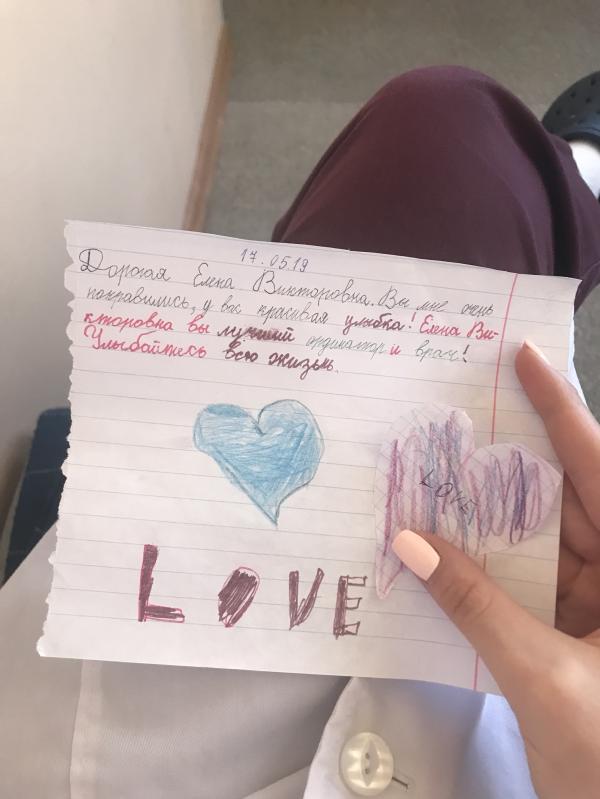 17.05.19
Дорогая Елена Викторовна. Вы мне очень
понравились, у вас красивая улыбка! Елена Ви-
кторовна вы лучший ординатор и врач!
Улыбайтесь всю жизнь.
LOVE
LOVE